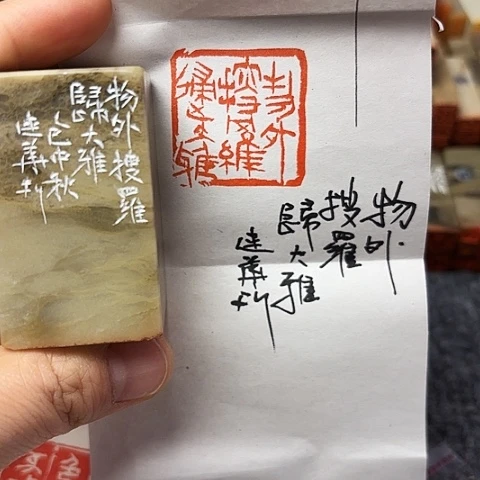 物外搜羅
歸大雅
中秋
達華刊
物外
搜羅
歸大雅
物外
搜羅
歸大雅
達華刊